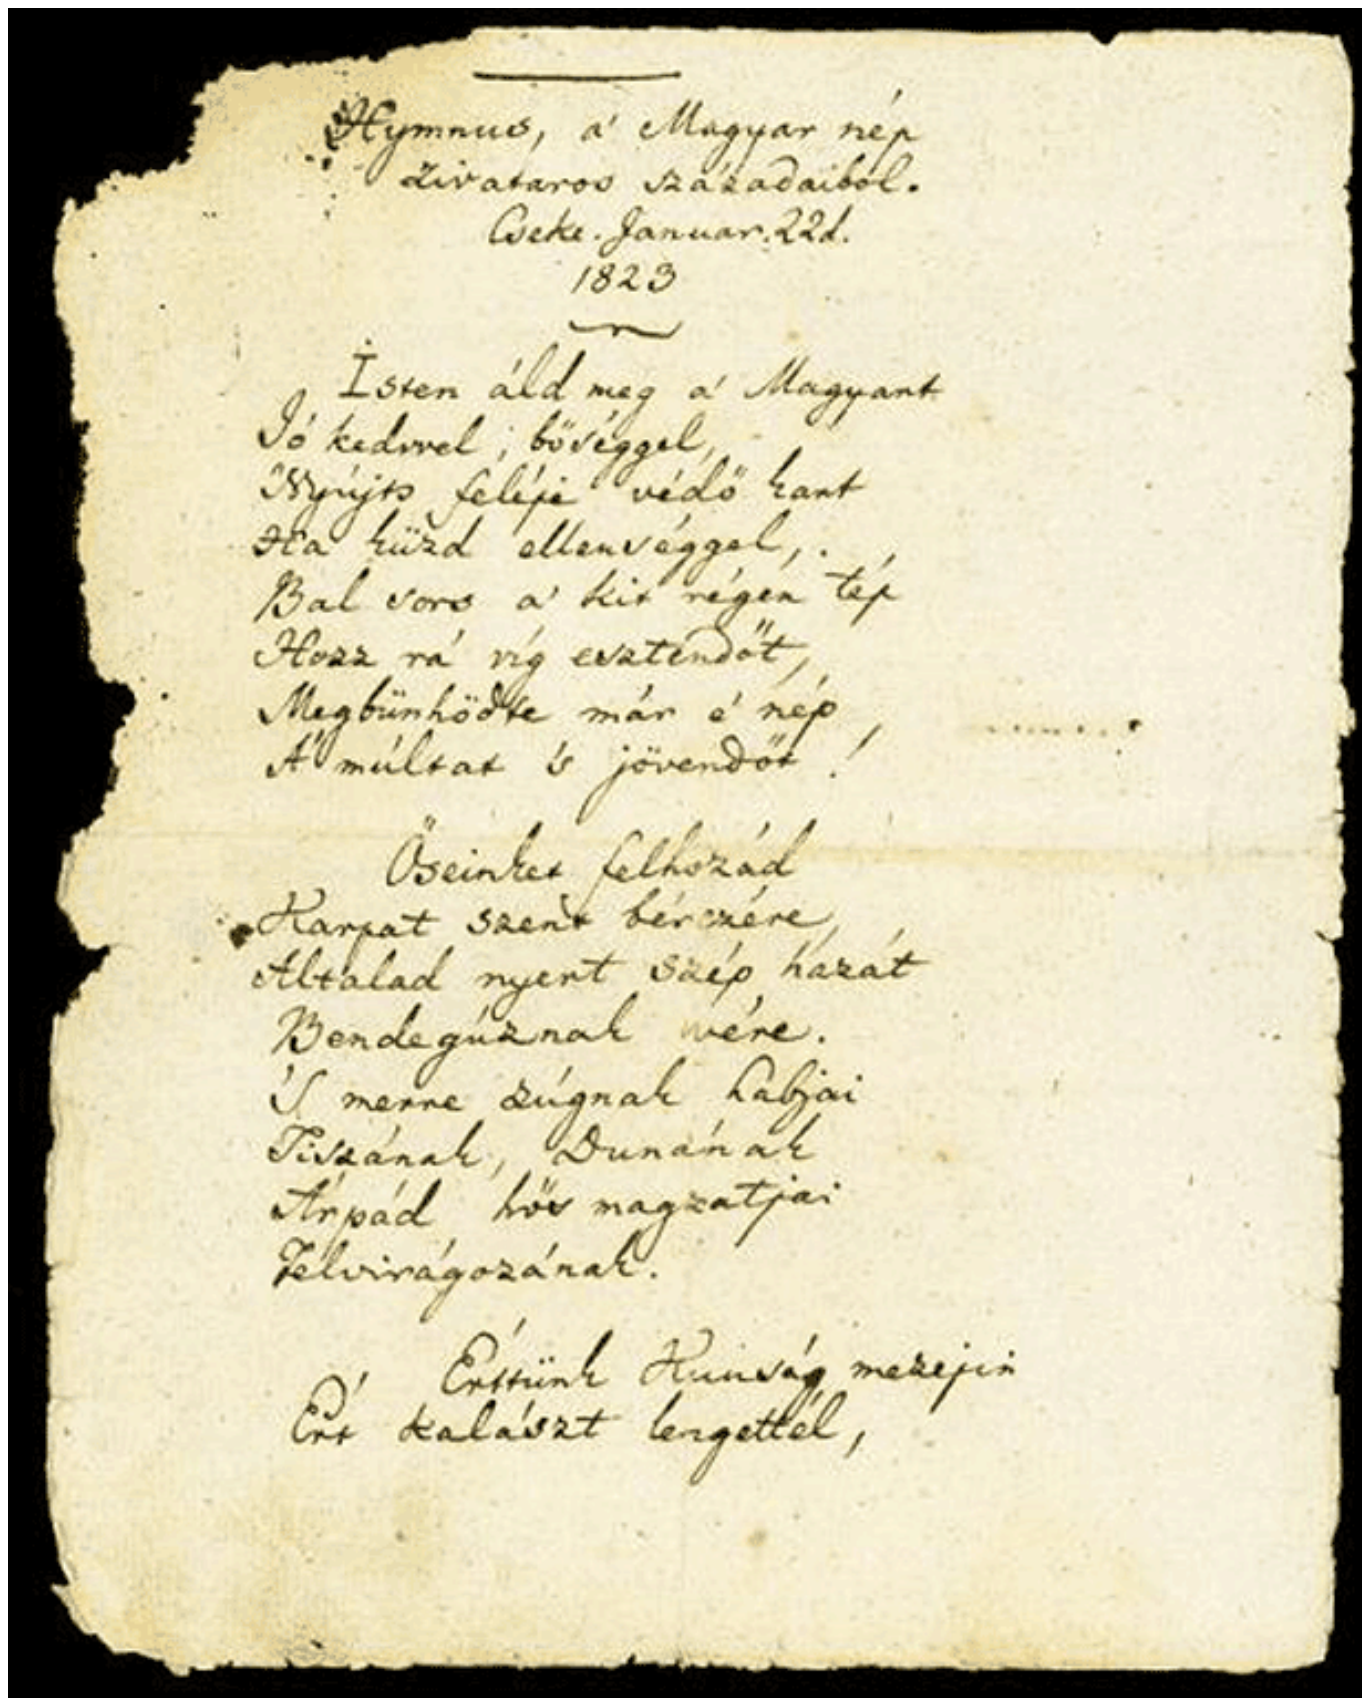 Hymnus, a' Magyar nép
zivataros századaiból.
Cseke. Januar. 22d.
1823
Isten áld meg a' Magyart
Jó kedvvel, bőséggel,
Nyújts feléje védő kart
Ha küzd ellenséggel,
Bal sors a' kit régen tép
Hozz rá víg esztendőt,
Megbünhödte már e' nép
A' múltat 's jövendőt!
Őseinket felhozád
Karpat szent bérczére,
Általad nyert szép hazát
Bendegúznak vére.
'S merre zúgnak habjai
Tiszának, Dunának
Árpád hős magzatjai
Felvirágozának.
Érttünk Kunság mezejin
Ért kalászt lengettél,